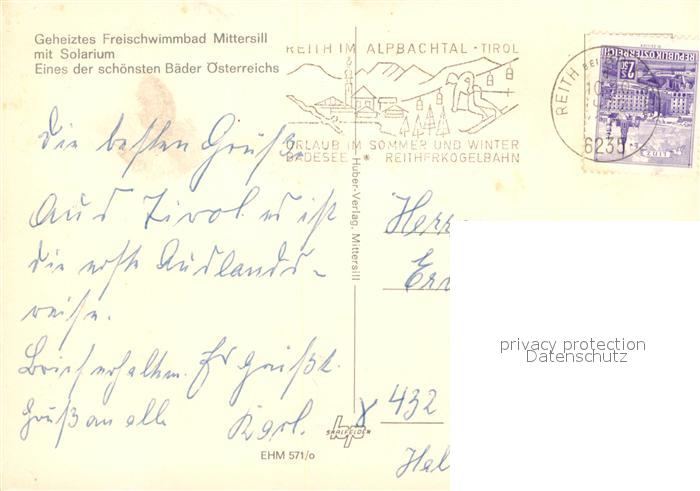 Geheiztes Freischwimmbad Mittersill
mit Solarium
Eines der schönsten Bäder Österreichs
REITH IM ALPBACHTAL - TIROL
URLAUB IM SOMMER UND WINTER
BADESEE * REITHERKOGELBAHN
REITH BEI
6235
REPUBLIK ÖSTERREICH
S 2.50
LINZ
Die besten Grüße
Aus Tirol es ist
die erste Auslands-
reise.
Brief erhalten. Es grüßt.
Gruß an alle Karl.
Huber-Verlag, Mittersill
Herrn
432
SAALFELDEN
hp
EHM 571/o
privacy protection
Datenschutz